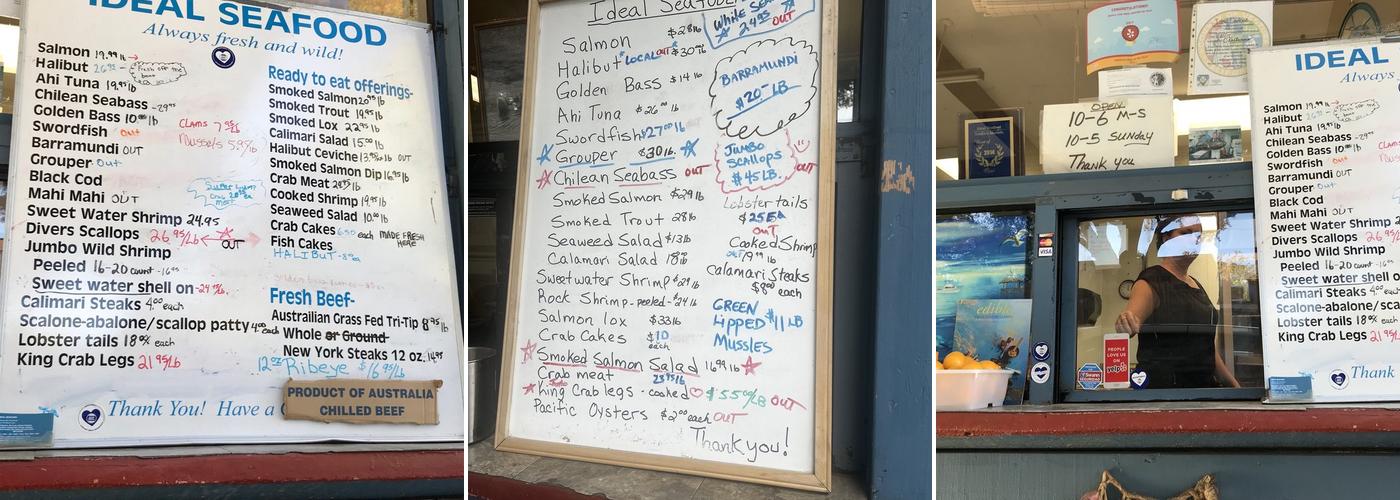 IDEAL SEAFOOD
Always fresh and wild!
Salmon 19.99 lb
Halibut 26.95 - Fresh off the boat
Ahi Tuna 19.95 lb
Chilean Seabass -29.95
Golden Bass 10.00 lb
Swordfish out
Barramundi OUT
Grouper out
Black Cod
Mahi Mahi OUT
Sweet Water Shrimp 24.95
Divers Scallops 26.95/Lb OUT
Jumbo Wild Shrimp
Peeled 16-20 count -16.95
Sweet water shell on -24.95
Calimari Steaks 4.00 each
Scalone-abalone/scallop patty 4.00 each
Lobster tails 18.00 each
King Crab Legs 21.95/Lb
CLAMS 7.95/Lb
Mussels 5.95/Lb
Ready to eat offerings-
Smoked Salmon 20.95 lb
Smoked Trout 19.95 lb
Smoked Lox 22.95 lb
Calimari Salad 15.00 lb
Halibut Ceviche 13.95 lb OUT
Smoked Salmon Dip 16.95 lb
Crab Meat 29.95 lb
Cooked Shrimp 19.95 lb
Seaweed Salad 10.00 lb
Crab Cakes 6.50 each MADE FRESH HERE
Fish Cakes
HALIBUT
Fresh Beef-
Austrailian Grass Fed Tri-Tip 8.95 lb
Whole or Ground
New York Steaks 12 oz. 14.95
12oz Ribeye $16.95/Lb
PRODUCT OF AUSTRALIA
CHILLED BEEF
Thank You! Have a
Ideal Seafood
WHITE
24.95 OUT
Salmon $28 lb
Halibut "LOCAL" OUT $30 lb
Golden Bass $14 lb
Ahi Tuna $26 lb
Swordfish $27.00 lb
Grouper $30 lb
Chilean Seabass OUT
Smoked Salmon $29 lb
Smoked Trout 28 lb
Seaweed Salad $13 lb
Calamari Salad 18 lb
Sweetwater Shrimp $29 lb
Rock Shrimp - peeled - $24 lb
Salmon lox $33 lb
Crab Cakes $10 each
Smoked Salmon Salad 16.99 lb
Crab meat
King Crab legs - cooked $55.00/LB OUT
Pacific Oysters $2.00 each OUT
Thank you!
BARRAMUNDI
$20- LB
JUMBO
SCALLOPS
$45 LB.
OUT
Lobster tails
$25 EA
OUT
Cooked Shrimp
Calamari Steaks
$8.00 each
GREEN
LIPPED $11 LB
MUSSLES
CONGRATULATIONS!
OPEN
10-6 M-S
10-5 SUNday
Thank you
VISA
edible
PEOPLE
LOVE US
ON
yelp
Swann
IDEAL
Always
Salmon 19.99 lb
Halibut
Ahi Tuna 19.95 lb
Chilean Seabass -29.95
Golden Bass 10.00 lb
Swordfish out
Barramundi OUT
Grouper out
Black Cod
Mahi Mahi OUT
Sweet Water Shrimp
Divers Scallops 26.9
Jumbo Wild Shrimp
Peeled 16-20 count -16.95
Sweet water shell o
Calimari Steaks 4.00 e
Scalone-abalone/
Lobster tails 18.00 each
King Crab Legs 21.95/Lb
Thank